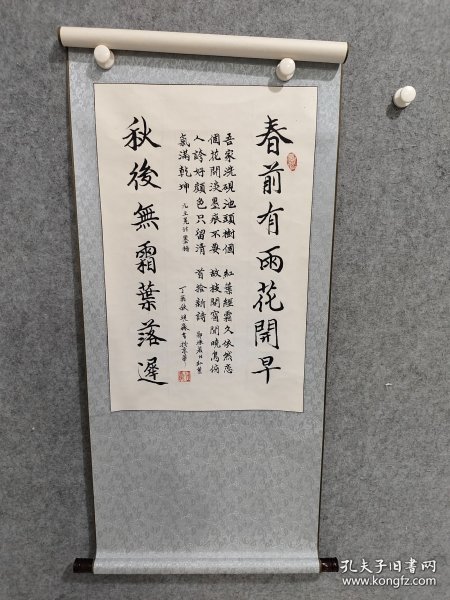 春前有雨花開早
吾家洗硯池頭樹個
個花開淡墨痕不要
人誇好顏色只留清
氣滿乾坤
元王冕詩墨梅
紅葉經霜久依然戀
故枝開窗聞曉鳥俯
首拾新詩
秋後無霜葉落遲
孔夫子旧书网
www.kongfz.com